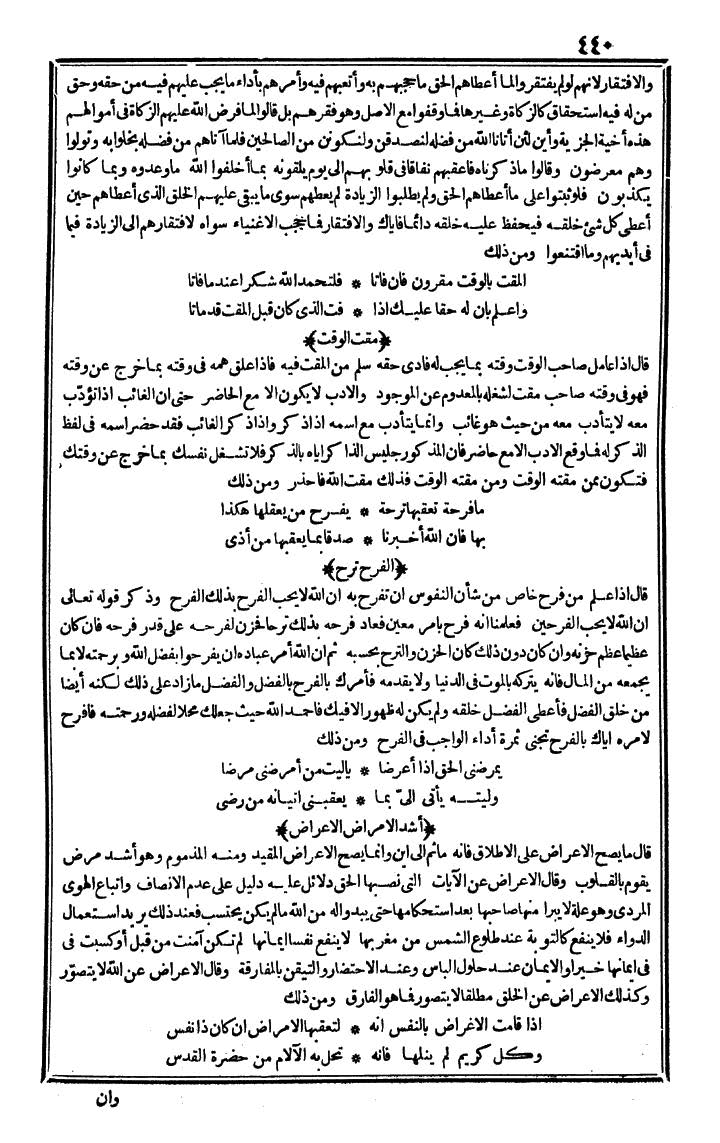 ٤٤٠
والافتقار لانهم لو لم يفتقروا لما أعطاهم الحق ما حجبهم به وأتعبهم فيه وأمرهم بأداء ما يجب عليهم فيه من حقه وحق
من له فيه استحقاق كالزكاة وغيرها فاوقفوا مع الاصل وهو فقرهم بل قالوا لما فرض الله عليهم الزكاة في أموالهم
هذه أخية الجزية وأين لئن آتانا الله من فضله لنصدقن ولنكونن من الصالحين فلما آتاهم من فضله بخلوا به وتولوا
وهم معرضون وقالوا ما ذكرناه فاعقبهم نفاقا في قلوبهم الى يوم يلقونه بما أخلفوا الله ما وعدوه وبما كانوا
يكذبون فلو ثبتوا على ما أعطاهم الحق ولم يطلبوا الزيادة لم يعطهم سوى ما يبقى عليهم الخلق الذي أعطاهم حين
أعطى كل شئ خلقه فيحفظ عليه خلقه دائما فاياك والافتقار فما حجب الاغنياء سواه لافتقارهم الى الزيادة فيما
في أيديهم وما اقتنعوا ومن ذلك
المقت بالوقت مقرون فان فاتا * فلتحمد الله شكرا عند ما فاتا
واعلم بان له حقا عليك اذا * فت الذي كان قبل المقت قد ماتا
﴿مقت الوقت﴾
قال اذا عامل صاحب الوقت وقته بما يجب له فادى حقه سلم من المقت فيه فاذا علق همه في وقته بما خرج عن وقته
فهو في وقته صاحب مقت لشغله بالمعدوم عن الموجود والادب لا يكون الا مع الحاضر حتى ان الغائب اذا تؤدّب
معه لا يتأدب معه من حيث هو غائب وانما يتأدب مع اسمه اذا ذكر واذا ذكر الغائب فقد حضر اسمه في لفظ
الذاكر له فما وقع الادب الا مع حاضر فان المذكور جليس الذاكر اياه بالذكر فلا تشغل نفسك بما خرج عن وقتك
فتكون ممن مقته الوقت ومن مقته الوقت فذلك مقت الله فاحذر ومن ذلك
ما فرحة تعقبها ترحة * يفرح من يعقلها هكذا
بها فان الله أخبرنا * صدقا بما يعقبها من أذى
﴿الفرح ترح﴾
قال اذا علم من فرح خاص من شأن النفوس ان تفرح به ان الله لا يحب الفرح بذلك الفرح وذكر قوله تعالى
ان الله لا يحب الفرحين فعلمنا انه فرح بامر معين فعاد فرحه بذلك ترحا فحزن لفرحه على قدر فرحه فان كان
عظيما عظم حزنه وان كان دون ذلك كان الحزن والترح بحسبه ثم ان الله أمر عباده ان يفرحوا بفضل الله وبرحمته لا بما
يجمعه من المال فانه يتركه بالموت في الدنيا ولا يقدمه فأمرك بالفرح بالفضل والفضل ما زاد على ذلك لكنه أيضا
من خلق الفضل فأعطى الفضل خلقه ولم يكن له ظهور الا فيك فاحمد الله حيث جعلك محلا لفضله ورحمته فافرح
لامره اياك بالفرح تجني ثمرة أداء الواجب في الفرح ومن ذلك
يمرضني الحق اذا أعرضا * ياليت من أمرضني مرضا
وليته يأتي الىّ بما * يعقبني اتيانه من رضى
﴿أشد الامراض الاعراض﴾
قال ما يصح الاعراض على الاطلاق فانه ما ثم الى اين وانما يصح الاعراض المقيد ومنه المذموم وهو أشد مرض
يقوم بالقلوب وقال الاعراض عن الآيات التي نصبها الحق دلائل عليه دليل على عدم الانصاف واتباع الهوى
المردى وهو علة لا يبرا منها صاحبها بعد استحكامها حتى يبدو له من الله ما لم يكن يحتسب فعند ذلك يريد استعمال
الدواء فلا ينفع كالتوبة عند طلوع الشمس من مغربها لا ينفع نفسا ايمانها لم تكن آمنت من قبل أو كسبت في
في ايمانها خيرا والايمان عند حلول الباس وعند الاحتضار والتيقن بالمفارقة وقال الاعراض عن الله لا يتصوّر
وكذلك الاعراض عن الخلق مطلقا لا يتصور فما هو الفارق ومن ذلك
اذا قامت الاغراض بالنفس انه * لتعقبها الامراض ان كان ذا نفس
وكل كريم لم ينلها فانه * تحل به الآلام من حضرة القدس
وان